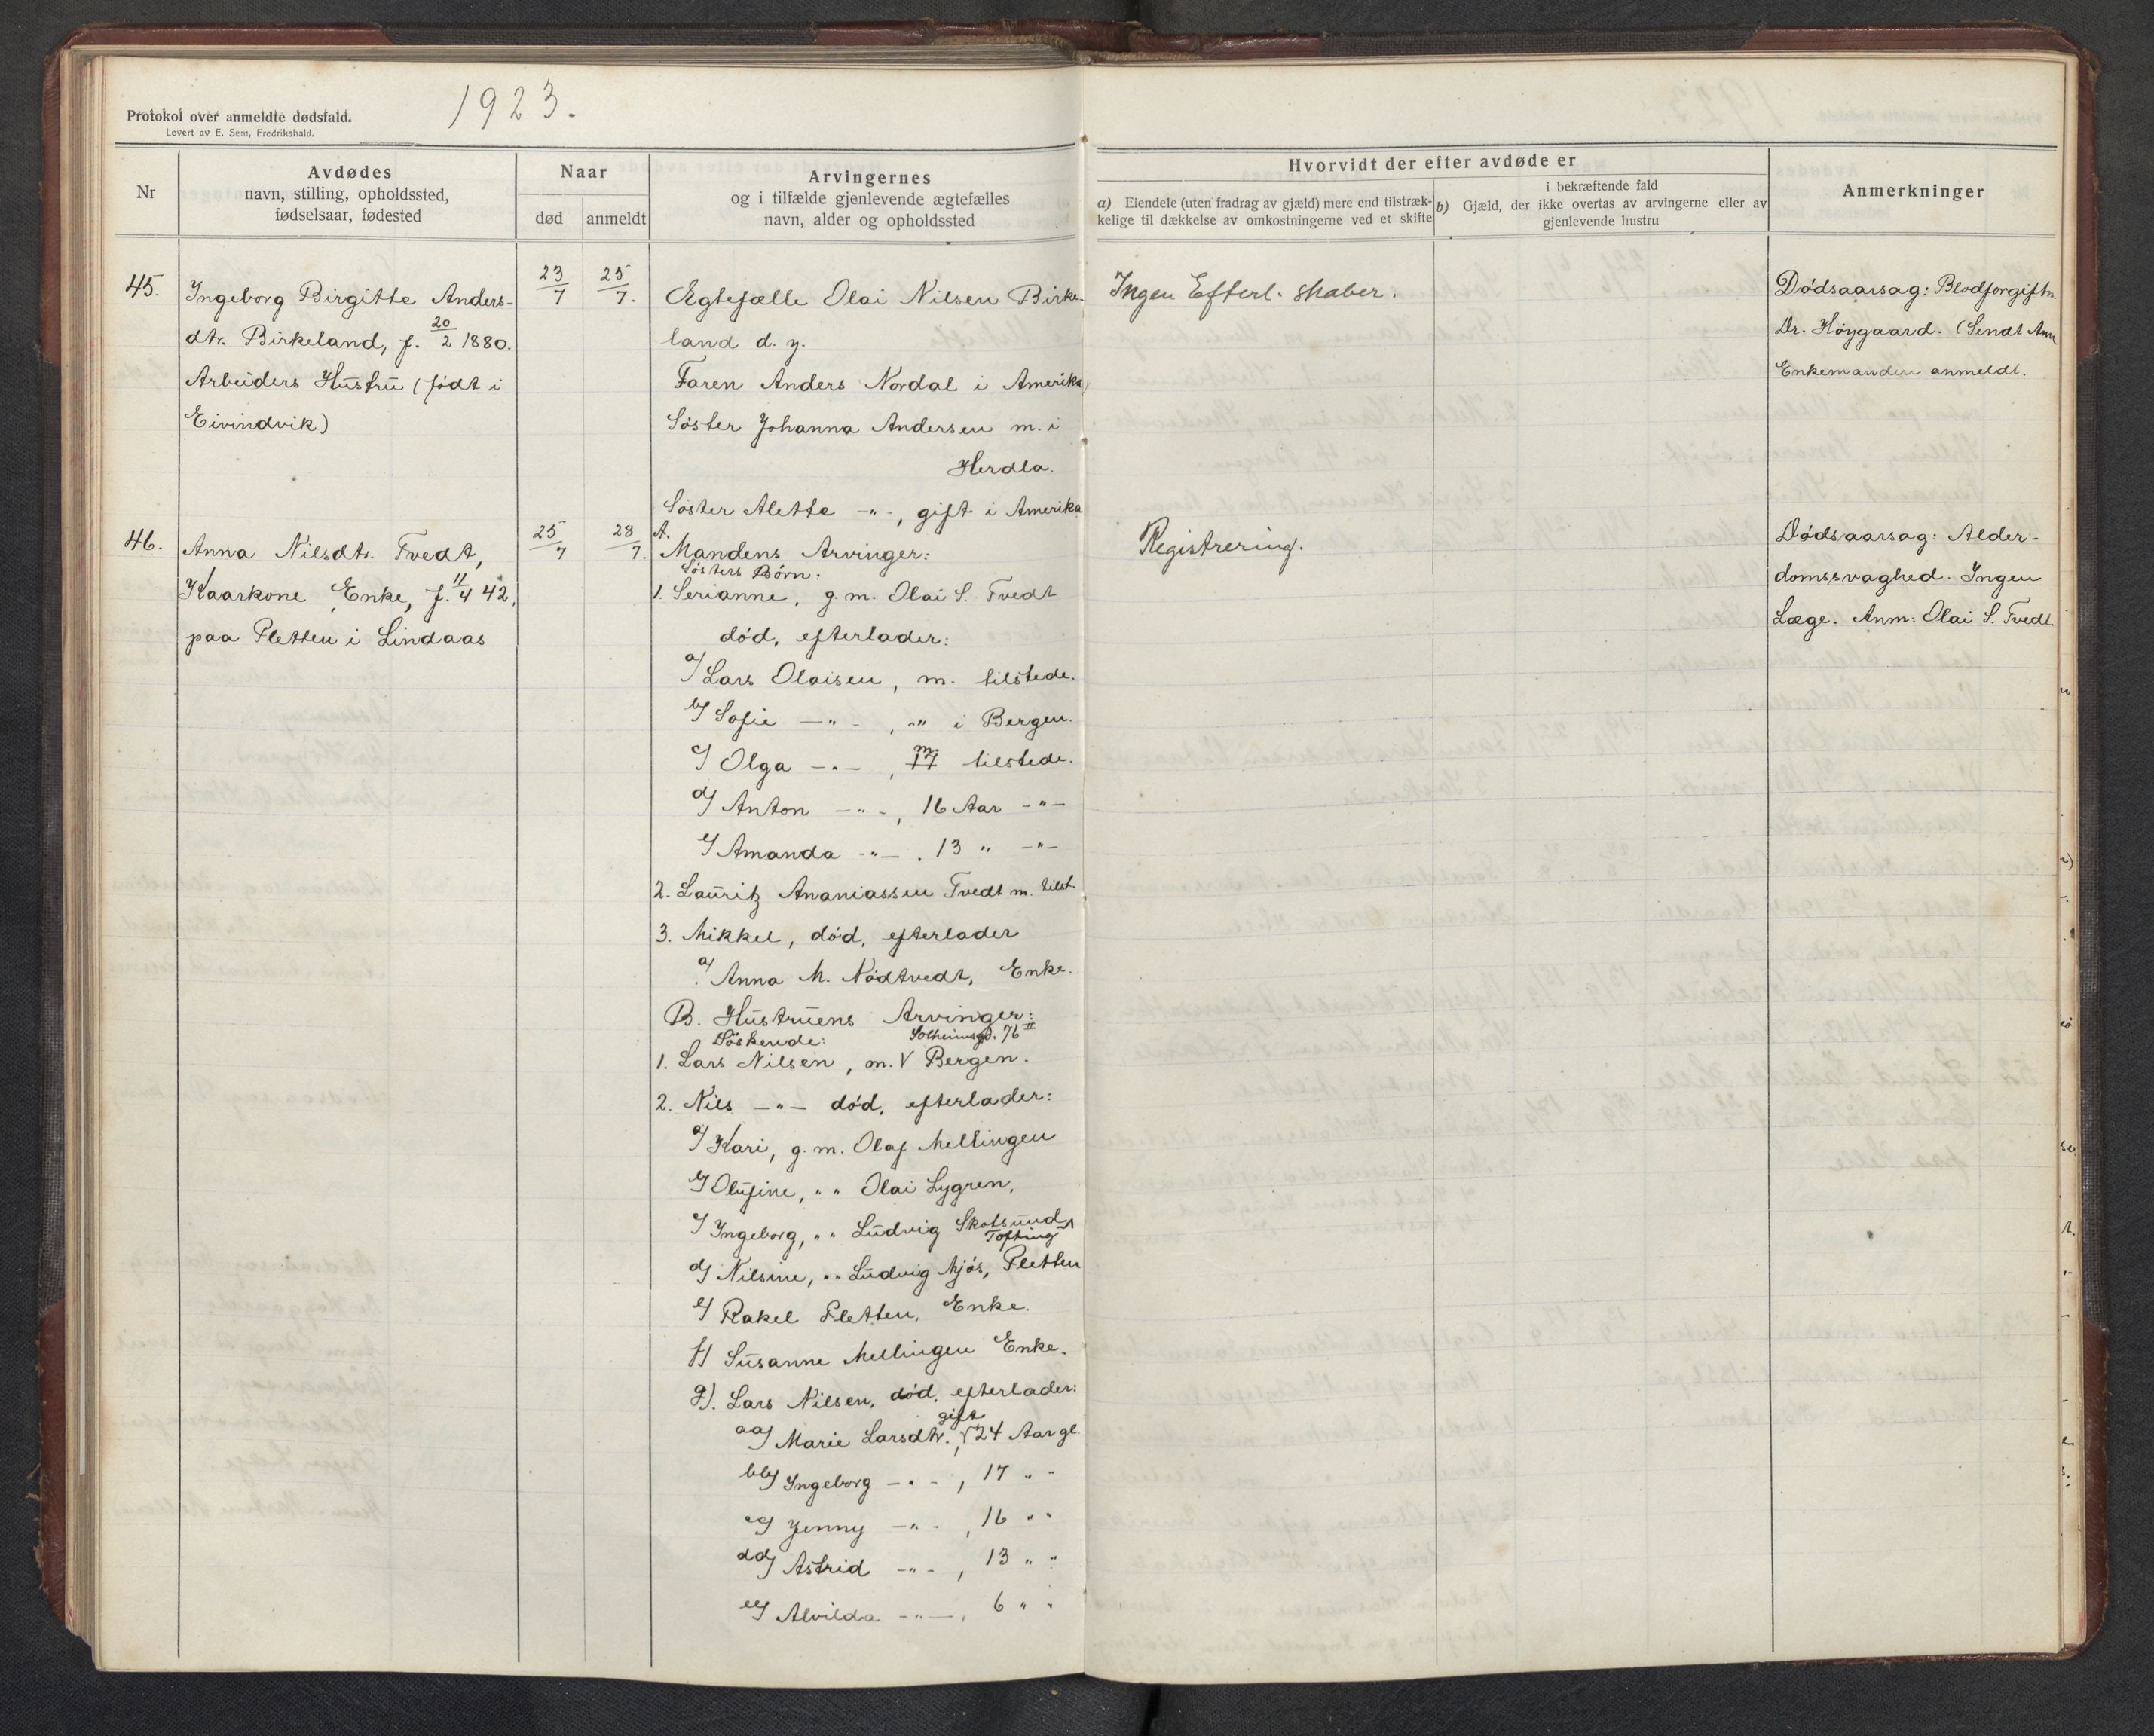 1923.
Protokol over anmeldte dødsfald.
Levert av E. Sem, Fredrikshald.
Nr
Avdødes
navn, stilling, opholdssted,
fødselsaar, fødested
Naar
død
anmeldt
Arvingernes
og i tilfælde gjenlevende ægtefælles
navn, alder og opholdssted
Hvorvidt der efter avdøde er
a) Eiendele (uten fradrag av gjæld) mere end tilstræk-
kelige til dækkelse av omkostningerne ved et skifte
i bekræftende fald
b) Gjæld, der ikke overtas av arvingerne eller av
gjenlevende hustru
Anmerkninger
45.
Ingeborg Birgitte Anders-
dtr. Birkeland, f. 20/2 1880.
Arbeiders Hustru (født i
Eivindvik)
23/7
25/7.
Ægtefælle Olai Nilsen Birke-
land d. y.
Faren Anders Nordal i Amerika
Søster Johanna Andersen m. i
Herdla.
Søster Alette -"-, gift i Amerika
Ingen Efterl. skaber.
Dødsaarsag: Blodforgiftn.
Dr. Høygaard. (Sendt Anm
Enkemanden anmeldt.
46.
Anna Nilsdtr. Tvedt,
Kaarkone, Enke, f. 11/4 42,
paa Fletten i Lindaas
25/7
28/7.
A.
Mandens Arvinger:
Søsters Børn:
1. Serianne, g. m. Olai S. Tvedt
død, efterlader:
a/ Lars Olaisen, m. tilstede.
b/ Sofie -"-, -"- i Bergen.
c/ Olga -"-, 17 m. tilstede.
d/ Anton -"-, 16 Aar -"-
e/ Amanda -"-, 13 " -"-
2. Lauritz Ananiassen Tvedt m. tilst.
3. Mikkel, død, efterlader
a/ Anna M. Nødtvedt, Enke.
B. Hustruens Arvinger:
Søskende: Solheimsgd. 76 II
1. Lars Nilsen, m. V Bergen.
2. Nils -"- død, efterlader:
a/ Kari, g. m. Olaf Mellingen
b/ Olufine, " " Olai Lygren,
c/ Ingeborg, " " Ludvig Skotsund,
Tofting
d/ Nilsine, " " Ludvig Mjøs, Fletten
e/ Rakel Fletten, Enke.
f/ Susanne Mellingen Enke.
g). Lars Nilsen, død, efterlader:
gift
aa/ Marie Larsdtr., V 24 Aar gl.
bb/ Ingeborg -"-, 17 " "
cc/ Jenny -"-, 16 " "
dd/ Astrid -"-, 13 " "
ee/ Alvilda -"-, 6 " "
Registrering.
Dødsaarsag: Alder-
domssvaghed. Ingen
Læge. Anm: Olai S. Tvedt.